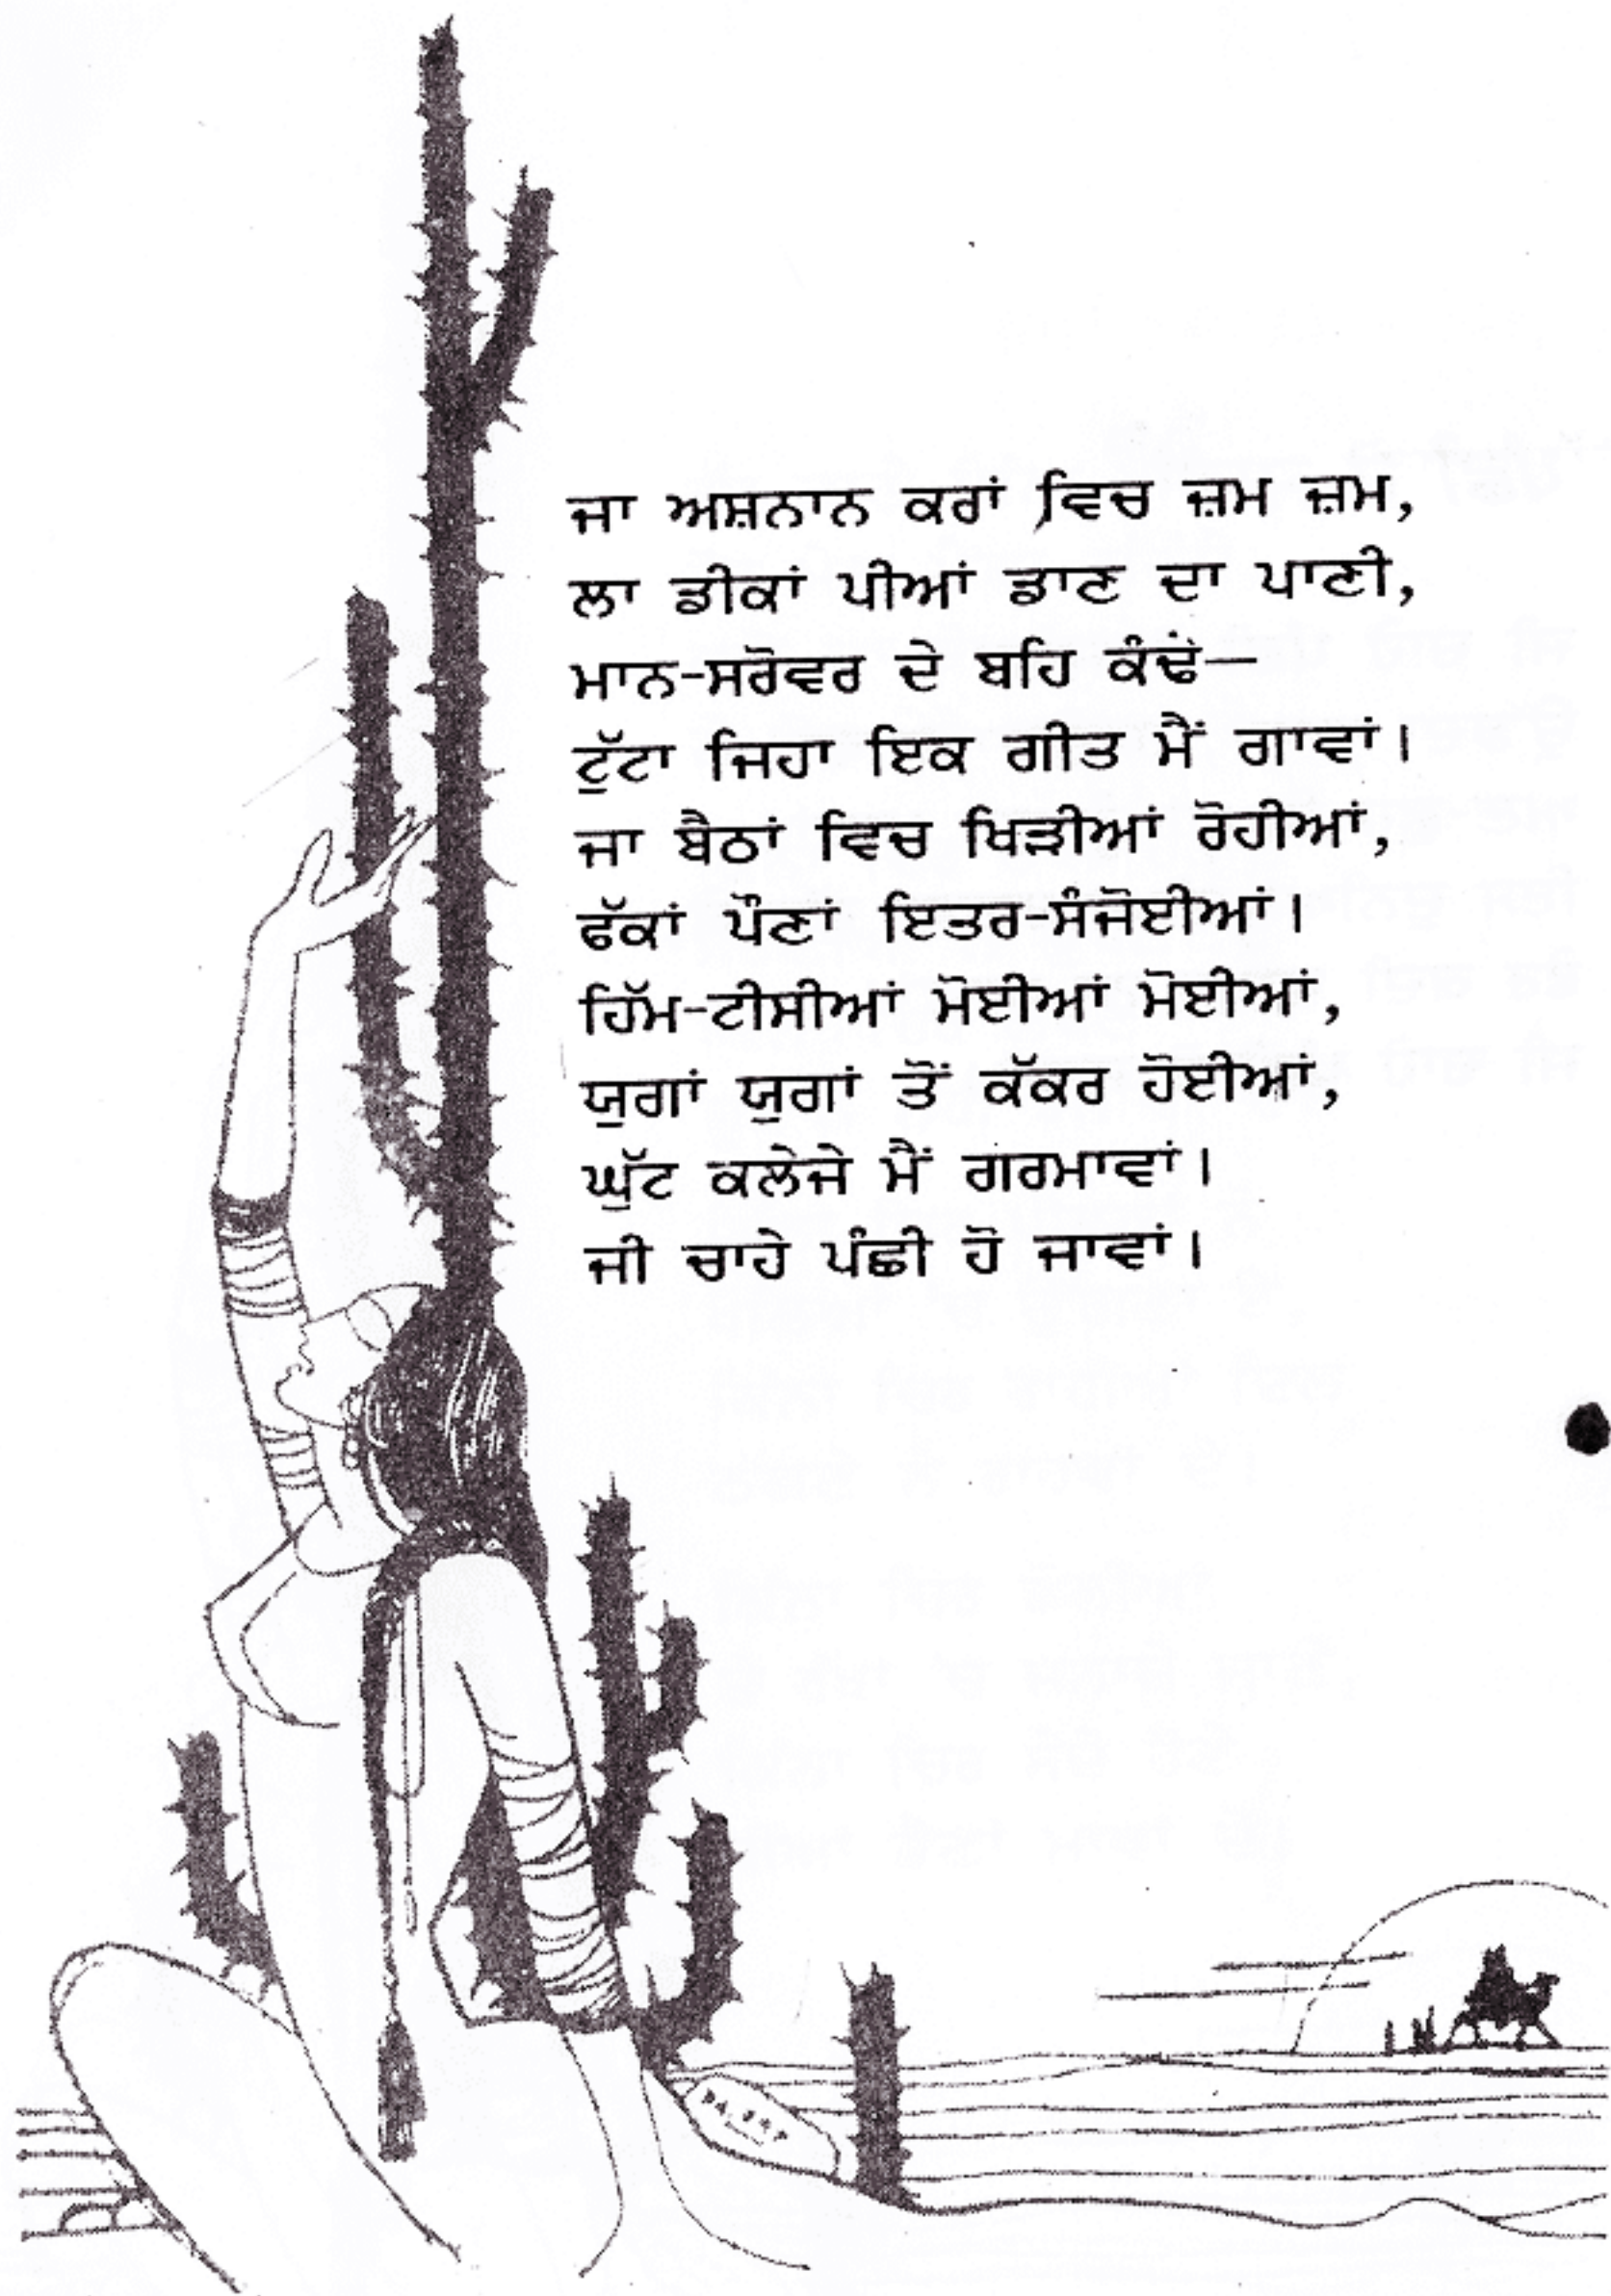 ਜਾ ਅਸ਼ਨਾਨ ਕਰਾਂ ਵਿਚ ਜ਼ਮ ਜ਼ਮ,
ਲਾ ਡੀਕਾਂ ਪੀਆਂ ਡਾਣ ਦਾ ਪਾਣੀ,
ਮਾਨ-ਸਰੋਵਰ ਦੇ ਬਹਿ ਕੰਢੇ—
ਟੁੱਟਾ ਜਿਹਾ ਇਕ ਗੀਤ ਮੈਂ ਗਾਵਾਂ।
ਜਾ ਬੈਠਾਂ ਵਿਚ ਖਿੜੀਆਂ ਰੋਹੀਆਂ,
ਫੱਕਾਂ ਪੌਣਾਂ ਇਤਰ-ਸੰਜੋਈਆਂ।
ਹਿੱਮ-ਟੀਸੀਆਂ ਮੋਈਆਂ ਮੋਈਆਂ,
ਯੁਗਾਂ ਯੁਗਾਂ ਤੋਂ ਕੱਕਰ ਹੋਈਆਂ,
ਘੁੱਟ ਕਲੇਜੇ ਮੈਂ ਗਰਮਾਵਾਂ।
ਜੀ ਚਾਹੇ ਪੰਛੀ ਹੋ ਜਾਵਾਂ।